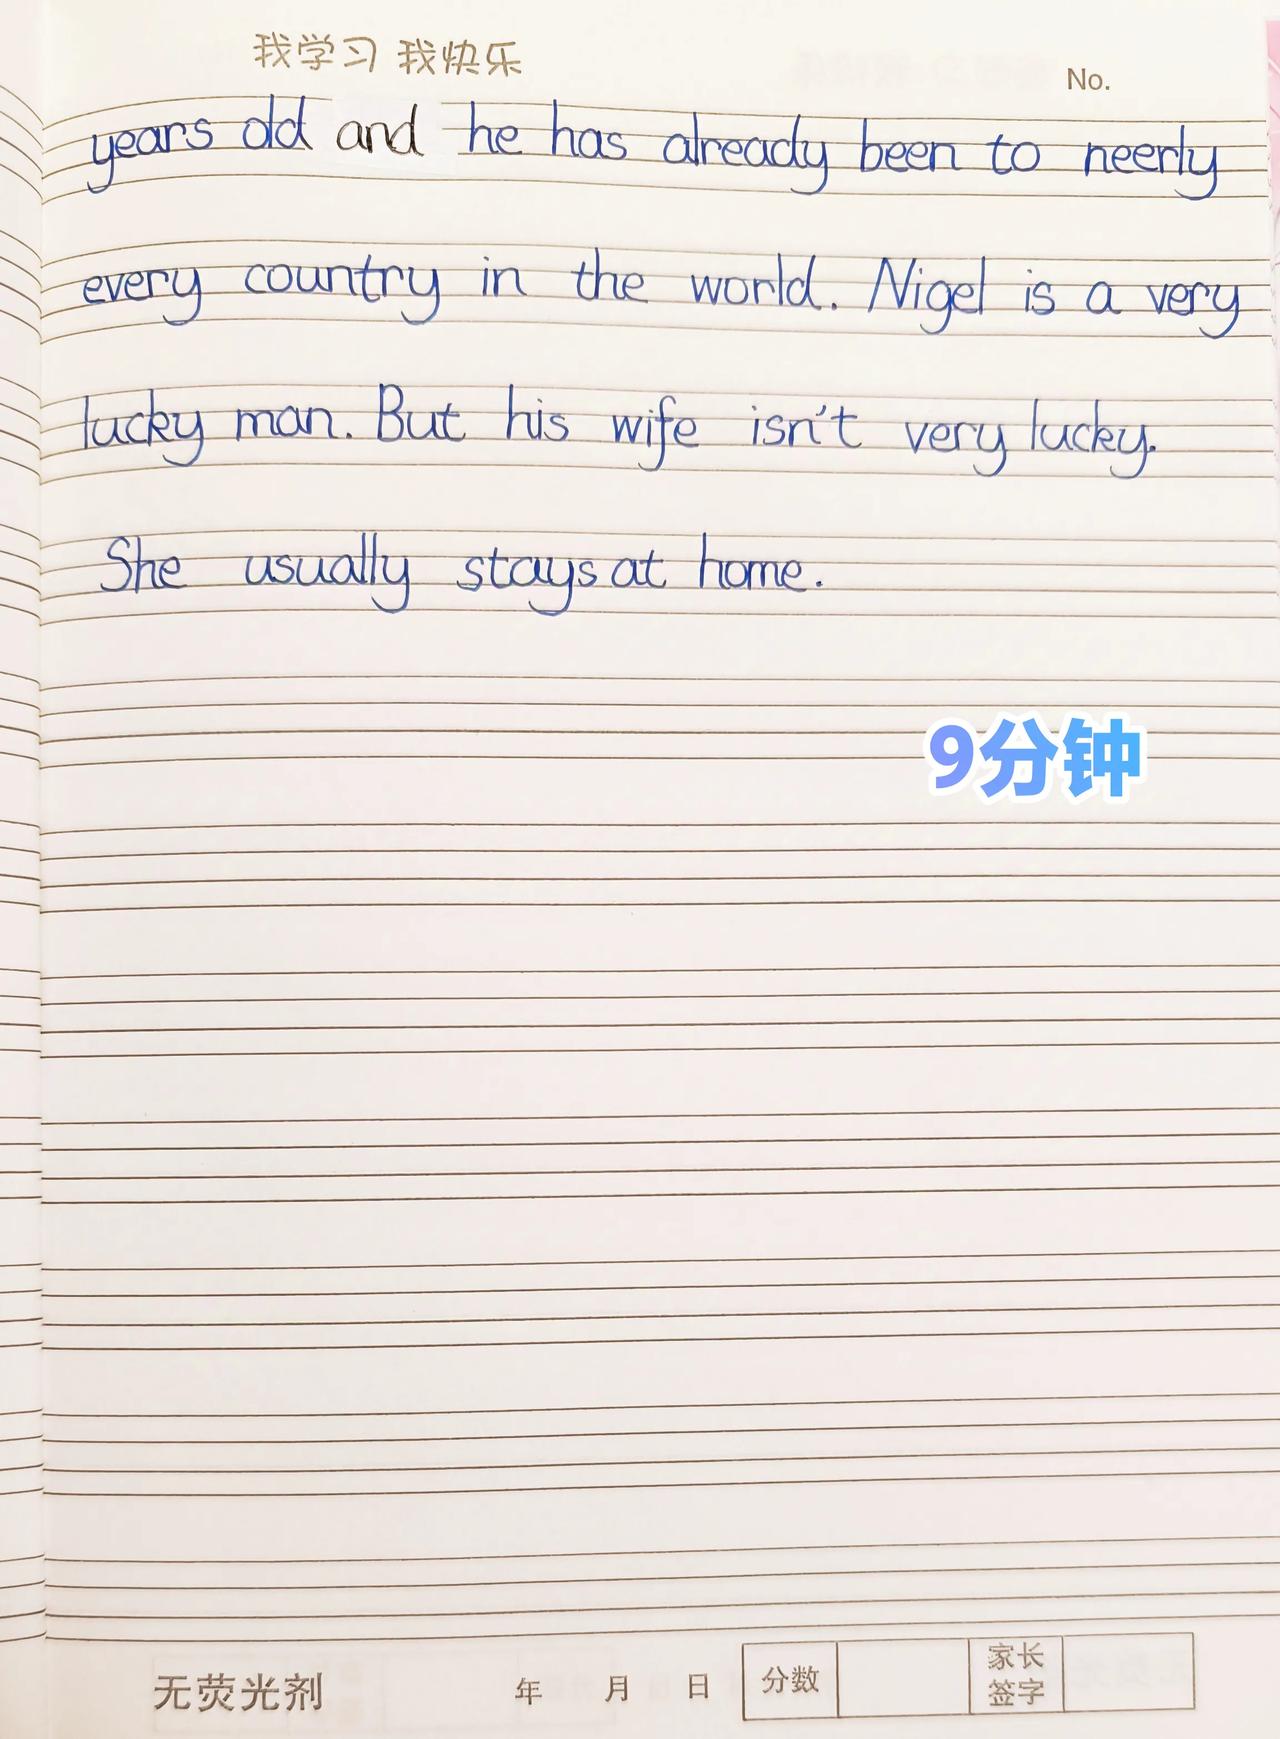 我学习 我快乐
No.
years old and he has already been to neerly
every country in the world. Nigel is a very
lucky man. But his wife isn't very lucky.
She usually stays at home.
9分钟
无荧光剂 年 月 日 分数 家长签字